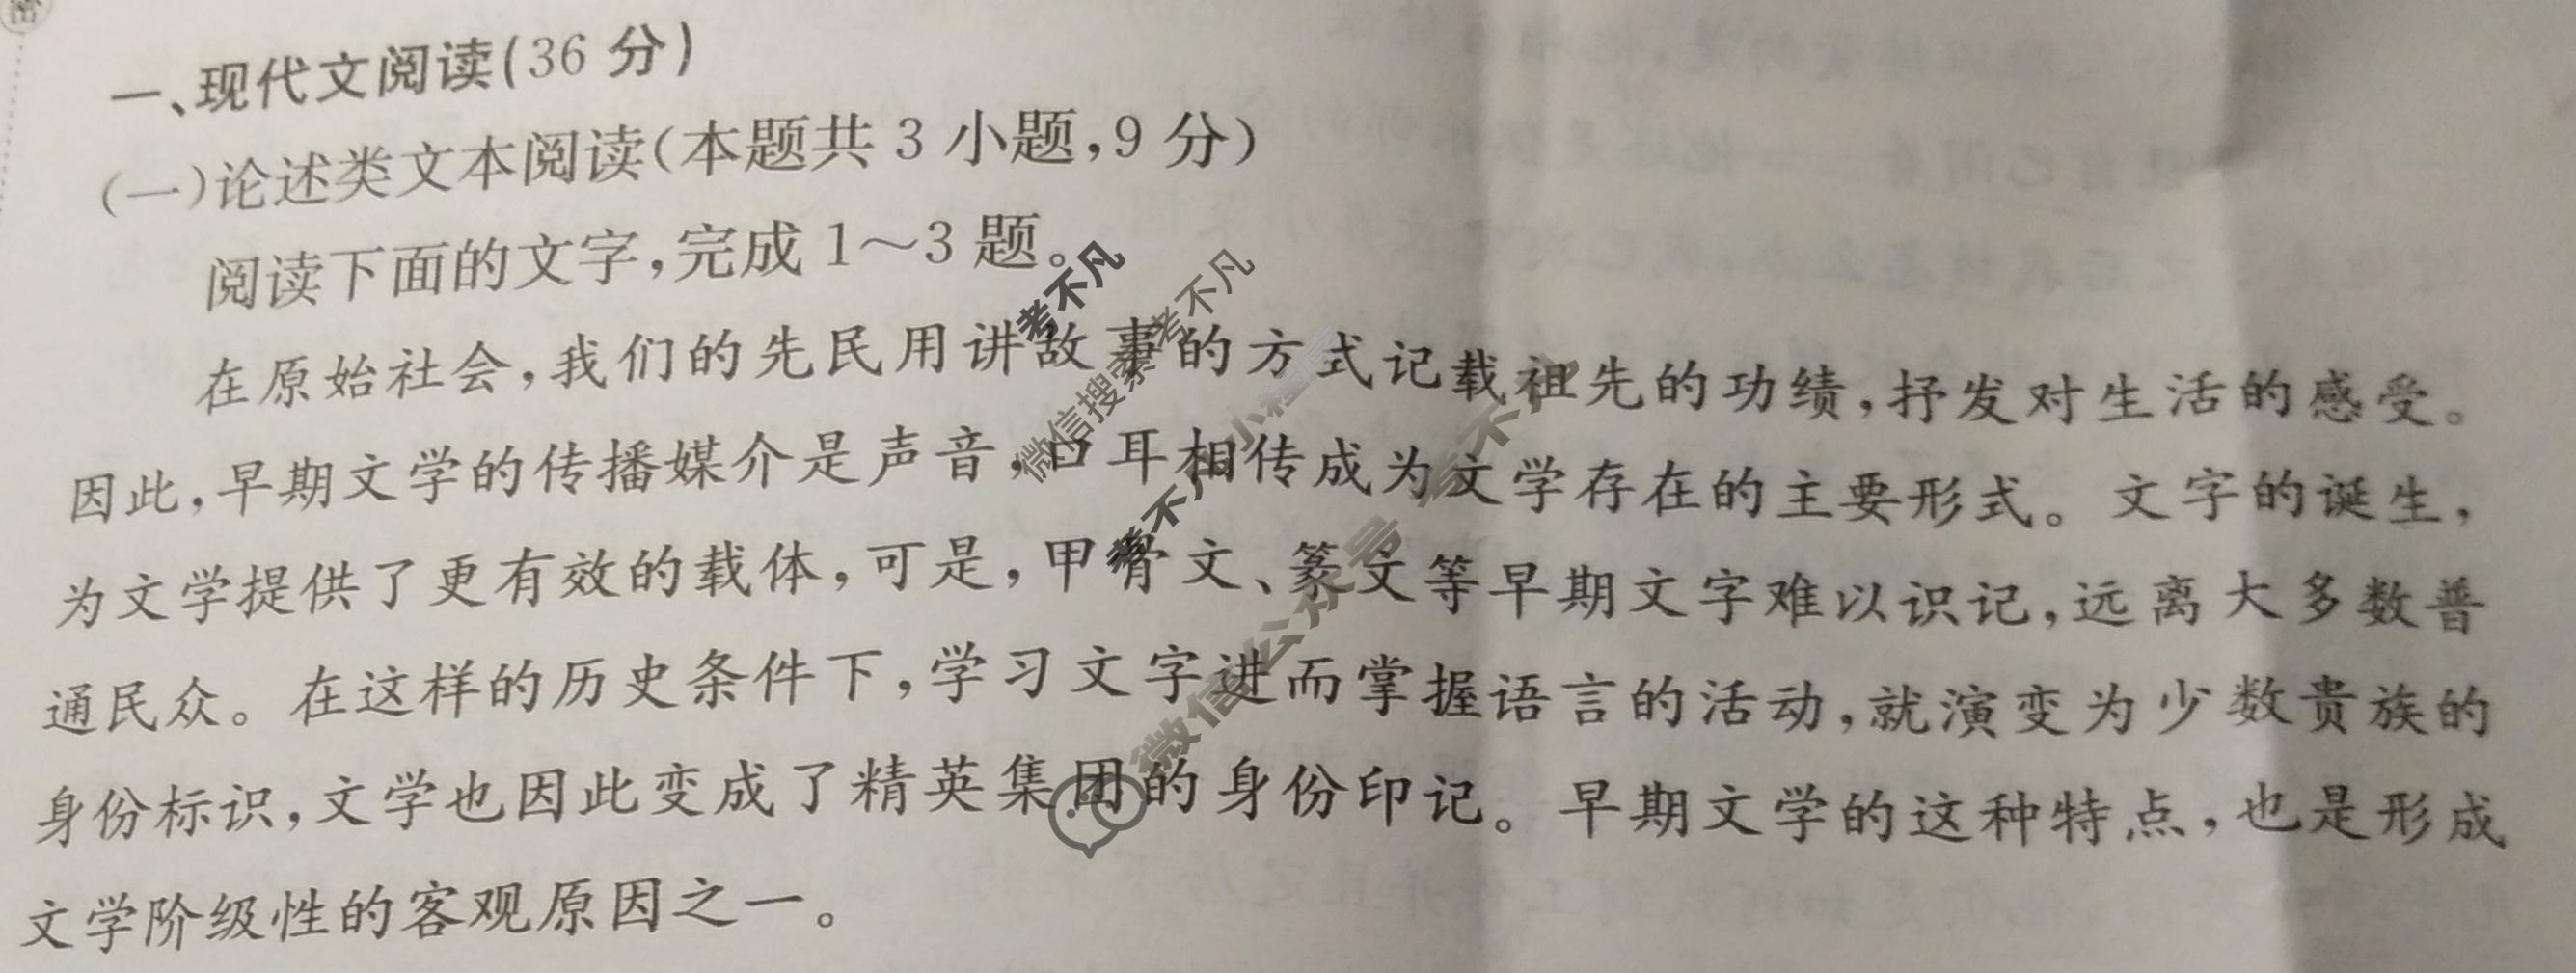 密
一、现代文阅读(36 分)
(一)论述类文本阅读(本题共 3 小题,9 分)
阅读下面的文字,完成 1～3 题。
在原始社会,我们的先民用讲故事的方式记载祖先的功绩,抒发对生活的感受。
因此,早期文学的传播媒介是声音,口耳相传成为文学存在的主要形式。文字的诞生,
为文学提供了更有效的载体,可是,甲骨文、篆文等早期文字难以识记,远离大多数普
通民众。在这样的历史条件下,学习文字进而掌握语言的活动,就演变为少数贵族的
身份标识,文学也因此变成了精英集团的身份印记。早期文学的这种特点,也是形成
文学阶级性的客观原因之一。
考不凡
微信搜索 考不凡
考不凡 小程序
微信公众号 考不凡